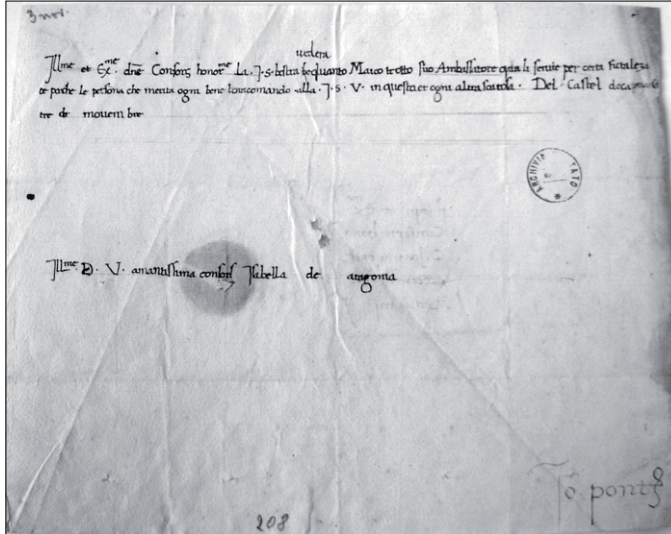 3 nov.
vedera
Ill^me et Ex^me dne Consors honor^me La. I. s. vestra quanto Marco trotto suo Ambassatore qua la serve per certa
et perche le persona che merita ogni bene lo aricomando alla .I. S. V. in questa et ogni altra . Del Castel
tre de novembre
ARCHIVIO STATO
Ill^me D. V. amantissima consors Isabella de aragonia
Jo. pont
208